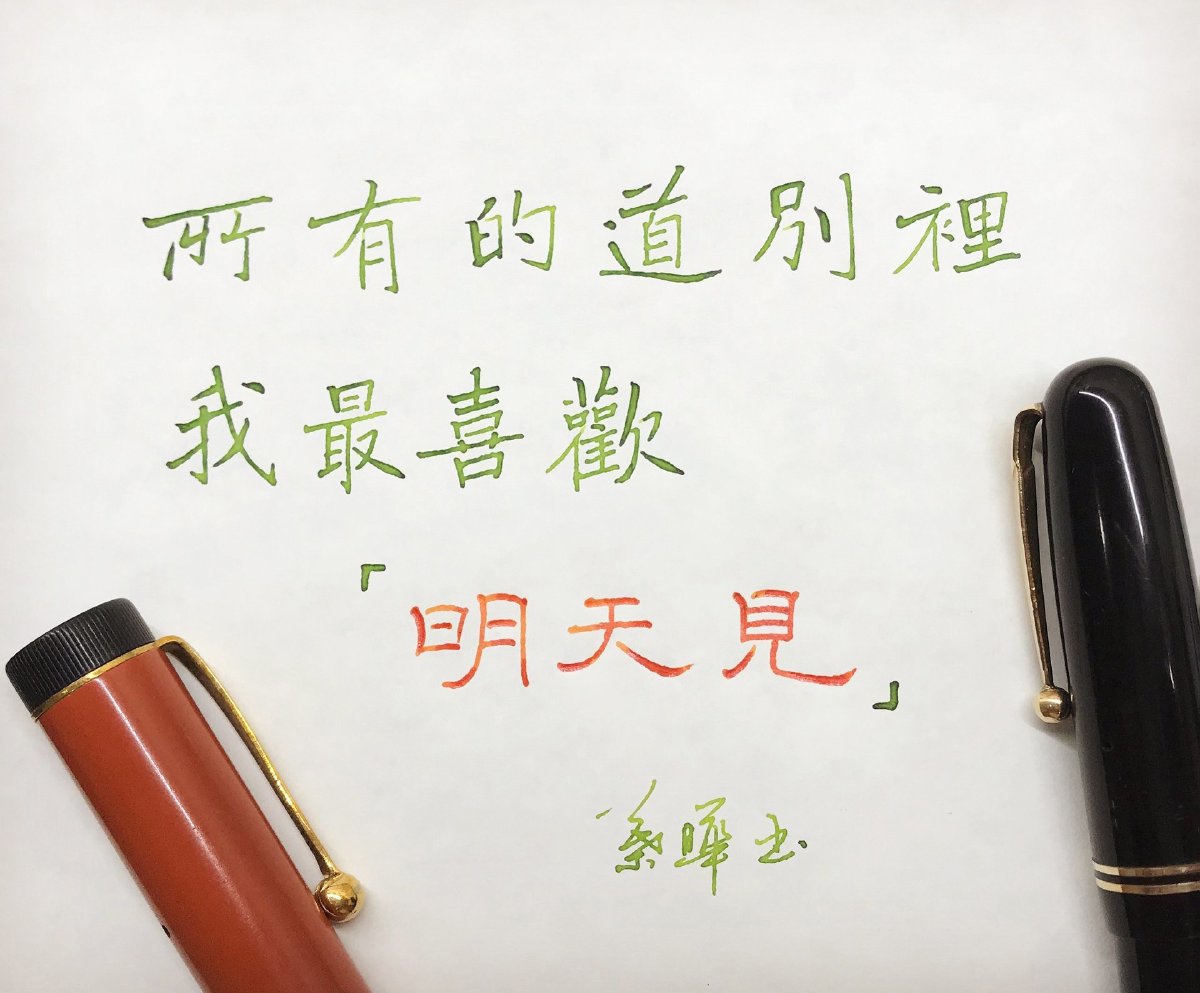 所有的道別裡
我最喜歡
「明天見」
曄书